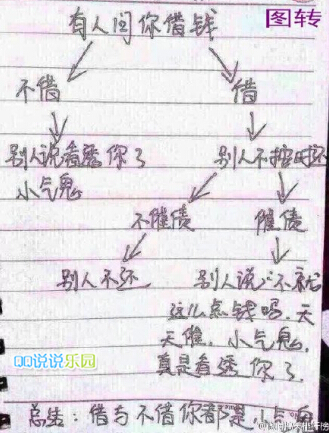 图转
有人问你借钱
不借 借
别人说看透你了 别人不按时还
小气鬼
不催债 催债
别人不还 别人说:不就
这么点钱吗,天
天催,小气鬼,
真是看透你了.
QQ说说乐园
总结:借与不借你都是小气鬼